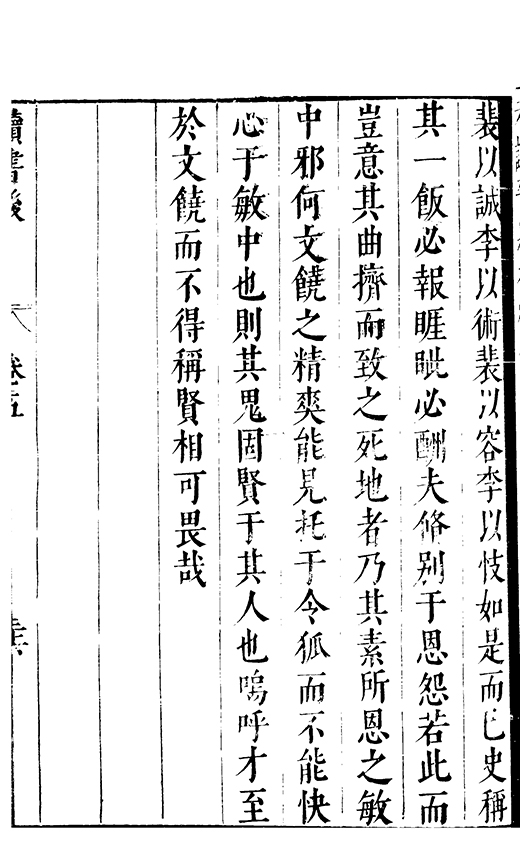 裴以誠李以術裴以容李以忮如是而已史稱
其一飯必報睚眦必酬夫脩别于恩怨若此而
豈意其曲擠而致之死地者乃其素所恩之敏
中邪何文饒之精爽能見托于令狐而不能快
心于敏中也則其鬼固賢于其人也嗚呼才至
於文饒而不得稱賢相可畏哉
讀書後
卷五